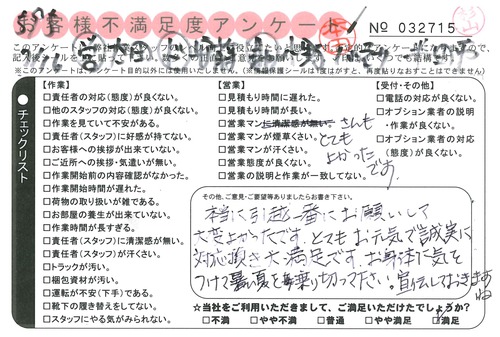 お客様不満足度アンケート
No 032715
【作業】
□責任者の対応(態度)が良くない。
□他のスタッフの対応(態度)が良くない。
□作業を見ていて不安がある。
□責任者(スタッフ)に好感が持てない。
□お客様への挨拶が出来ていない。
□ご近所への挨拶・気遣いが無い。
□作業開始前の内容確認がなかった。
□作業開始時間が遅れた。
□荷物の取り扱いが雑である。
□お部屋の養生が出来ていない。
□作業時間が長すぎる。
□責任者(スタッフ)に清潔感が無い。
□責任者(スタッフ)が汗くさい。
□トラックが汚い。
□梱包資材が汚い。
□運転が不安(下手)である。
□靴下の履き替えをしてない。
□スタッフにやる気がみられない。
チェックリスト
【営業】
□見積もり時間に遅れた。
□見積もり時間が長い。
□営業マンに清潔感が無い。さんも
□営業マンが煙草くさい。とても
□営業マンが汗くさい。よかった
□営業態度が良くない。です。
□営業の説明と作業が一致してない。
【受付・その他】
□電話の対応が良くない。
□オプション業者の説明
・作業が良くない。
□オプション業者の対応
(態度)が良くない。
その他、ご意見・ご要望等ありましたらお書き下さい。
本当に引越一番にお願いして
大変よかったです。とてもお元気で誠実に
対応頂き大満足です。お身体に気を
つけて暑い夏を乗り切って下さい。宣伝しておきます
ね
☆当社をご利用いただきまして、ご満足いただけたでしょうか?
□不満 □やや不満 □普通 □やや満足 □満足